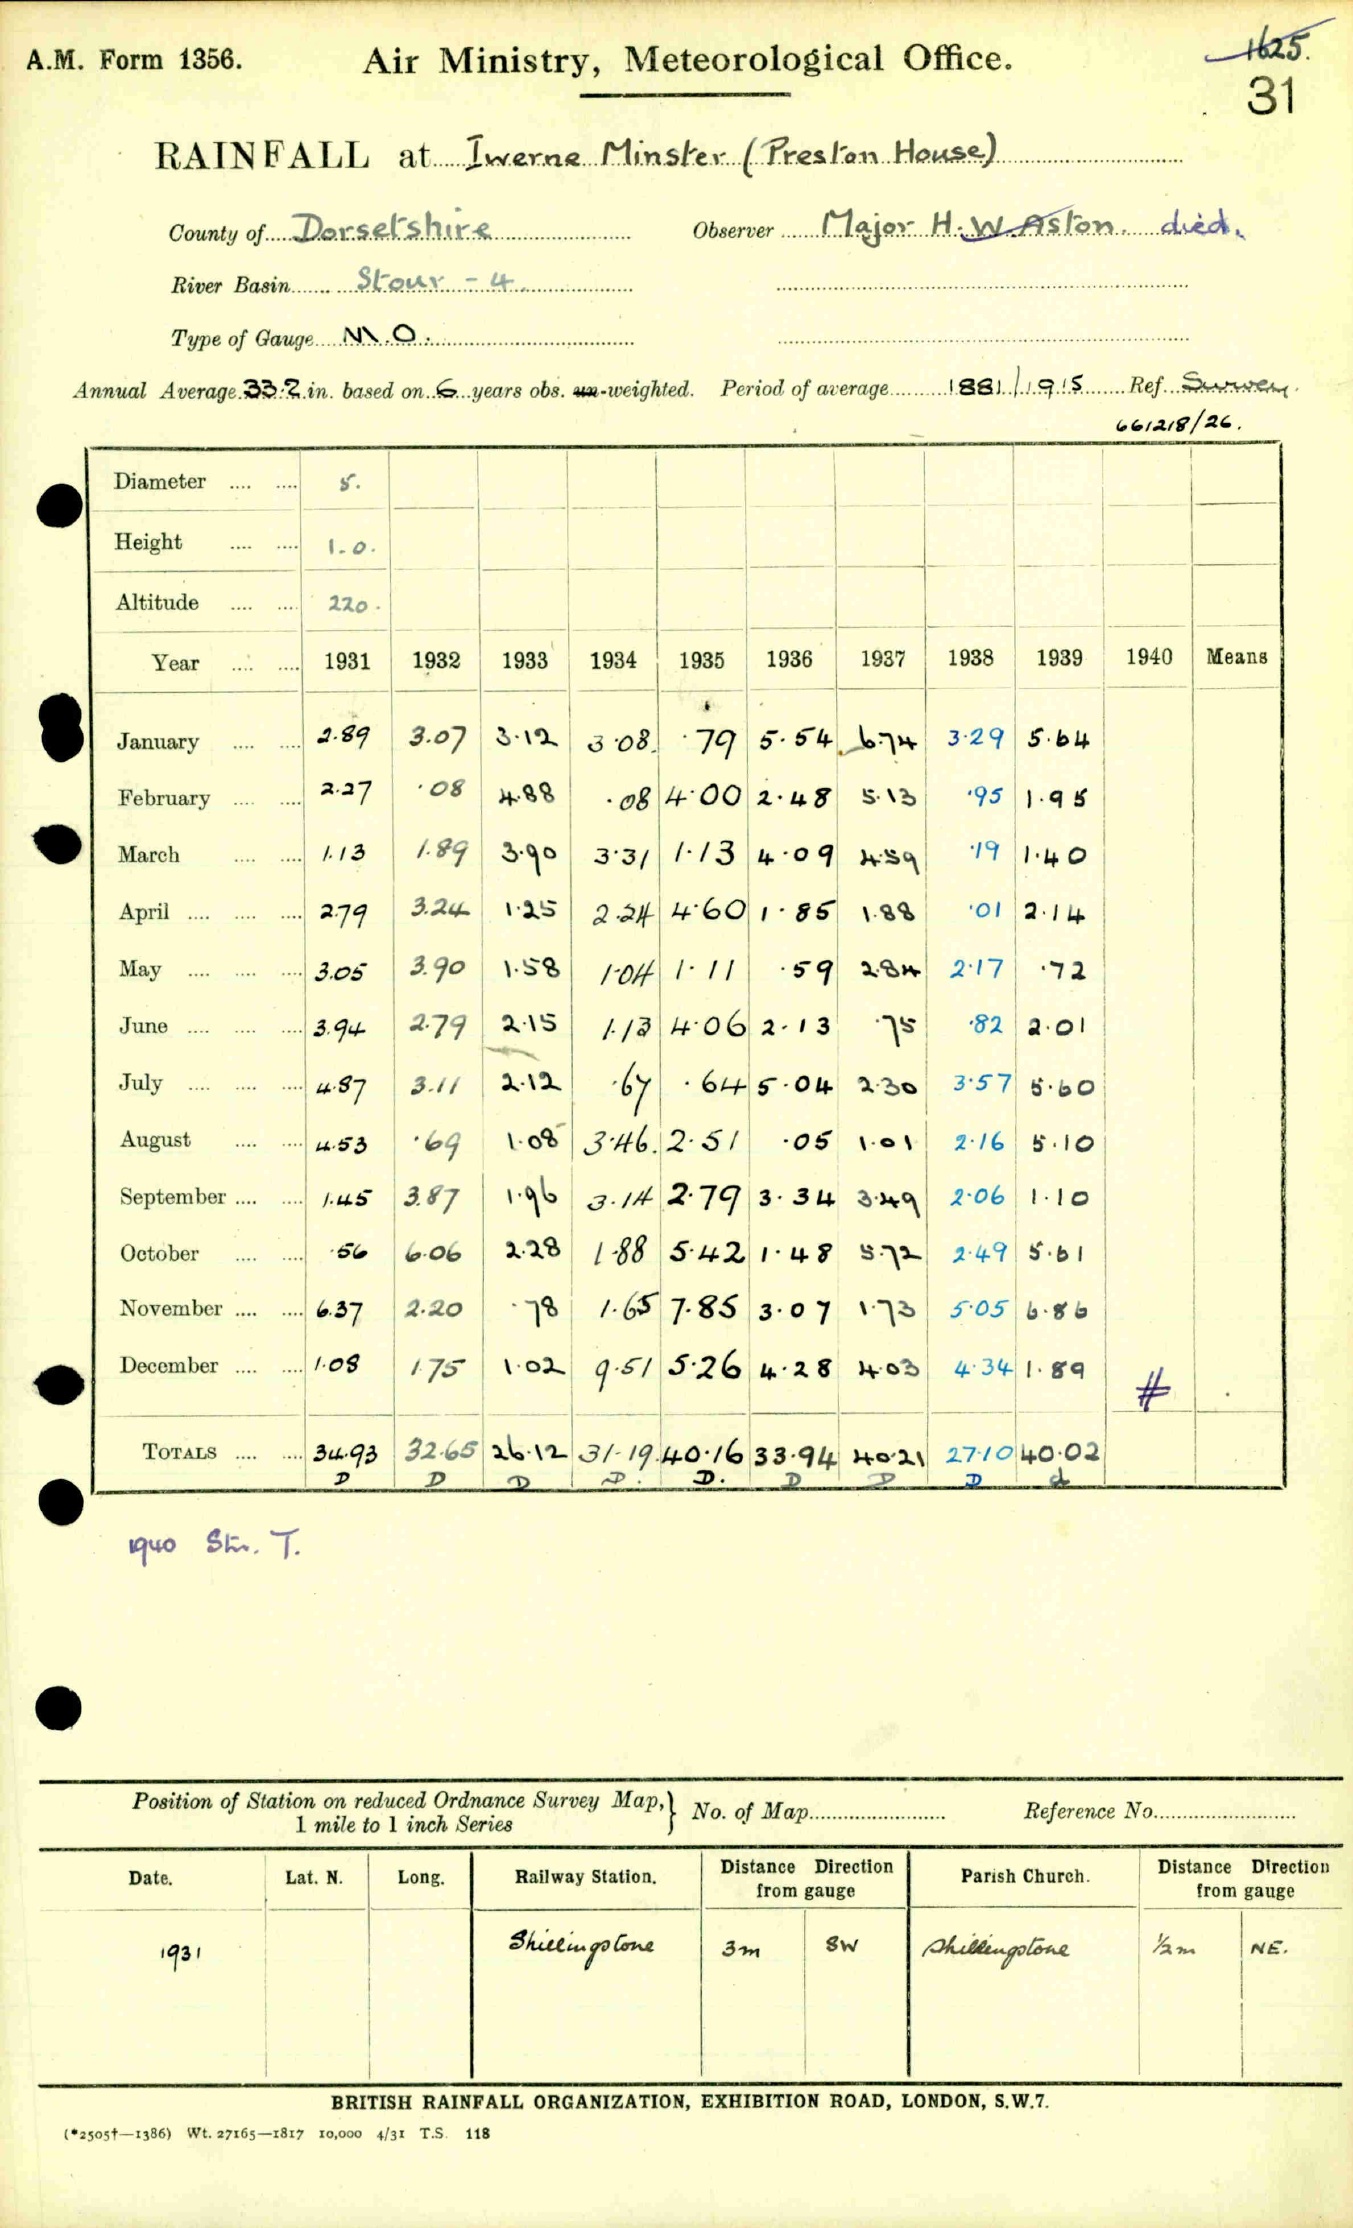 A.M. Form 1356. Air Ministry, Meteorological Office. 1625.
31
RAINFALL at Iwerne Minster (Preston House)
County of Dorsetshire Observer Major H. W. Aston. died.
River Basin Stour - 4.
Type of Gauge M.O.
Annual Average 33.2 in. based on 6 years obs. un-weighted. Period of average 1881/1915 Ref. Survey.
661218/26.
Diameter .... .... 5.
Height .... .... 1.0.
Altitude .... .... 220.
Year .... .... 1931 1932 1933 1934 1935 1936 1937 1938 1939 1940 Means
January .... .... 2.89 3.07 3.12 3.08 .79 5.54 6.74 3.29 5.64
February .... .... 2.27 .08 4.88 .08 4.00 2.48 5.13 .95 1.95
March .... .... 1.13 1.89 3.90 3.31 1.13 4.09 4.59 .19 1.40
April .... .... .... 2.79 3.24 1.25 2.24 4.60 1.85 1.88 .01 2.14
May .... .... .... 3.05 3.90 1.58 1.04 1.11 .59 2.84 2.17 .72
June .... .... .... 3.94 2.79 2.15 1.13 4.06 2.13 .75 .82 2.01
July .... .... .... 4.87 3.11 2.12 .67 .64 5.04 2.30 3.57 5.60
August .... .... 4.53 .69 1.08 3.46 2.51 .05 1.01 2.16 5.10
September .... .... 1.45 3.87 1.96 3.14 2.79 3.34 3.49 2.06 1.10
October .... .... .56 6.06 2.28 1.88 5.42 1.48 5.72 2.49 5.61
November .... .... 6.37 2.20 .78 1.65 7.85 3.07 1.73 5.05 6.86
December .... .... 1.08 1.75 1.02 9.51 5.26 4.28 4.03 4.34 1.89 #
TOTALS .... .... 34.93 32.65 26.12 31.19 40.16 33.94 40.21 27.10 40.02
D D D D. D. D D D d
1940 Stn. T.
Position of Station on reduced Ordnance Survey Map, } No. of Map Reference No.
1 mile to 1 inch Series
Date. Lat. N. Long. Railway Station. Distance Direction from gauge Parish Church. Distance Direction from gauge
1931 Shillingstone 3m SW Shillingstone 1/2 m NE.
BRITISH RAINFALL ORGANIZATION, EXHIBITION ROAD, LONDON, S.W.7.
(*2505†—1386) Wt. 27165—1817 10,000 4/31 T.S. 118